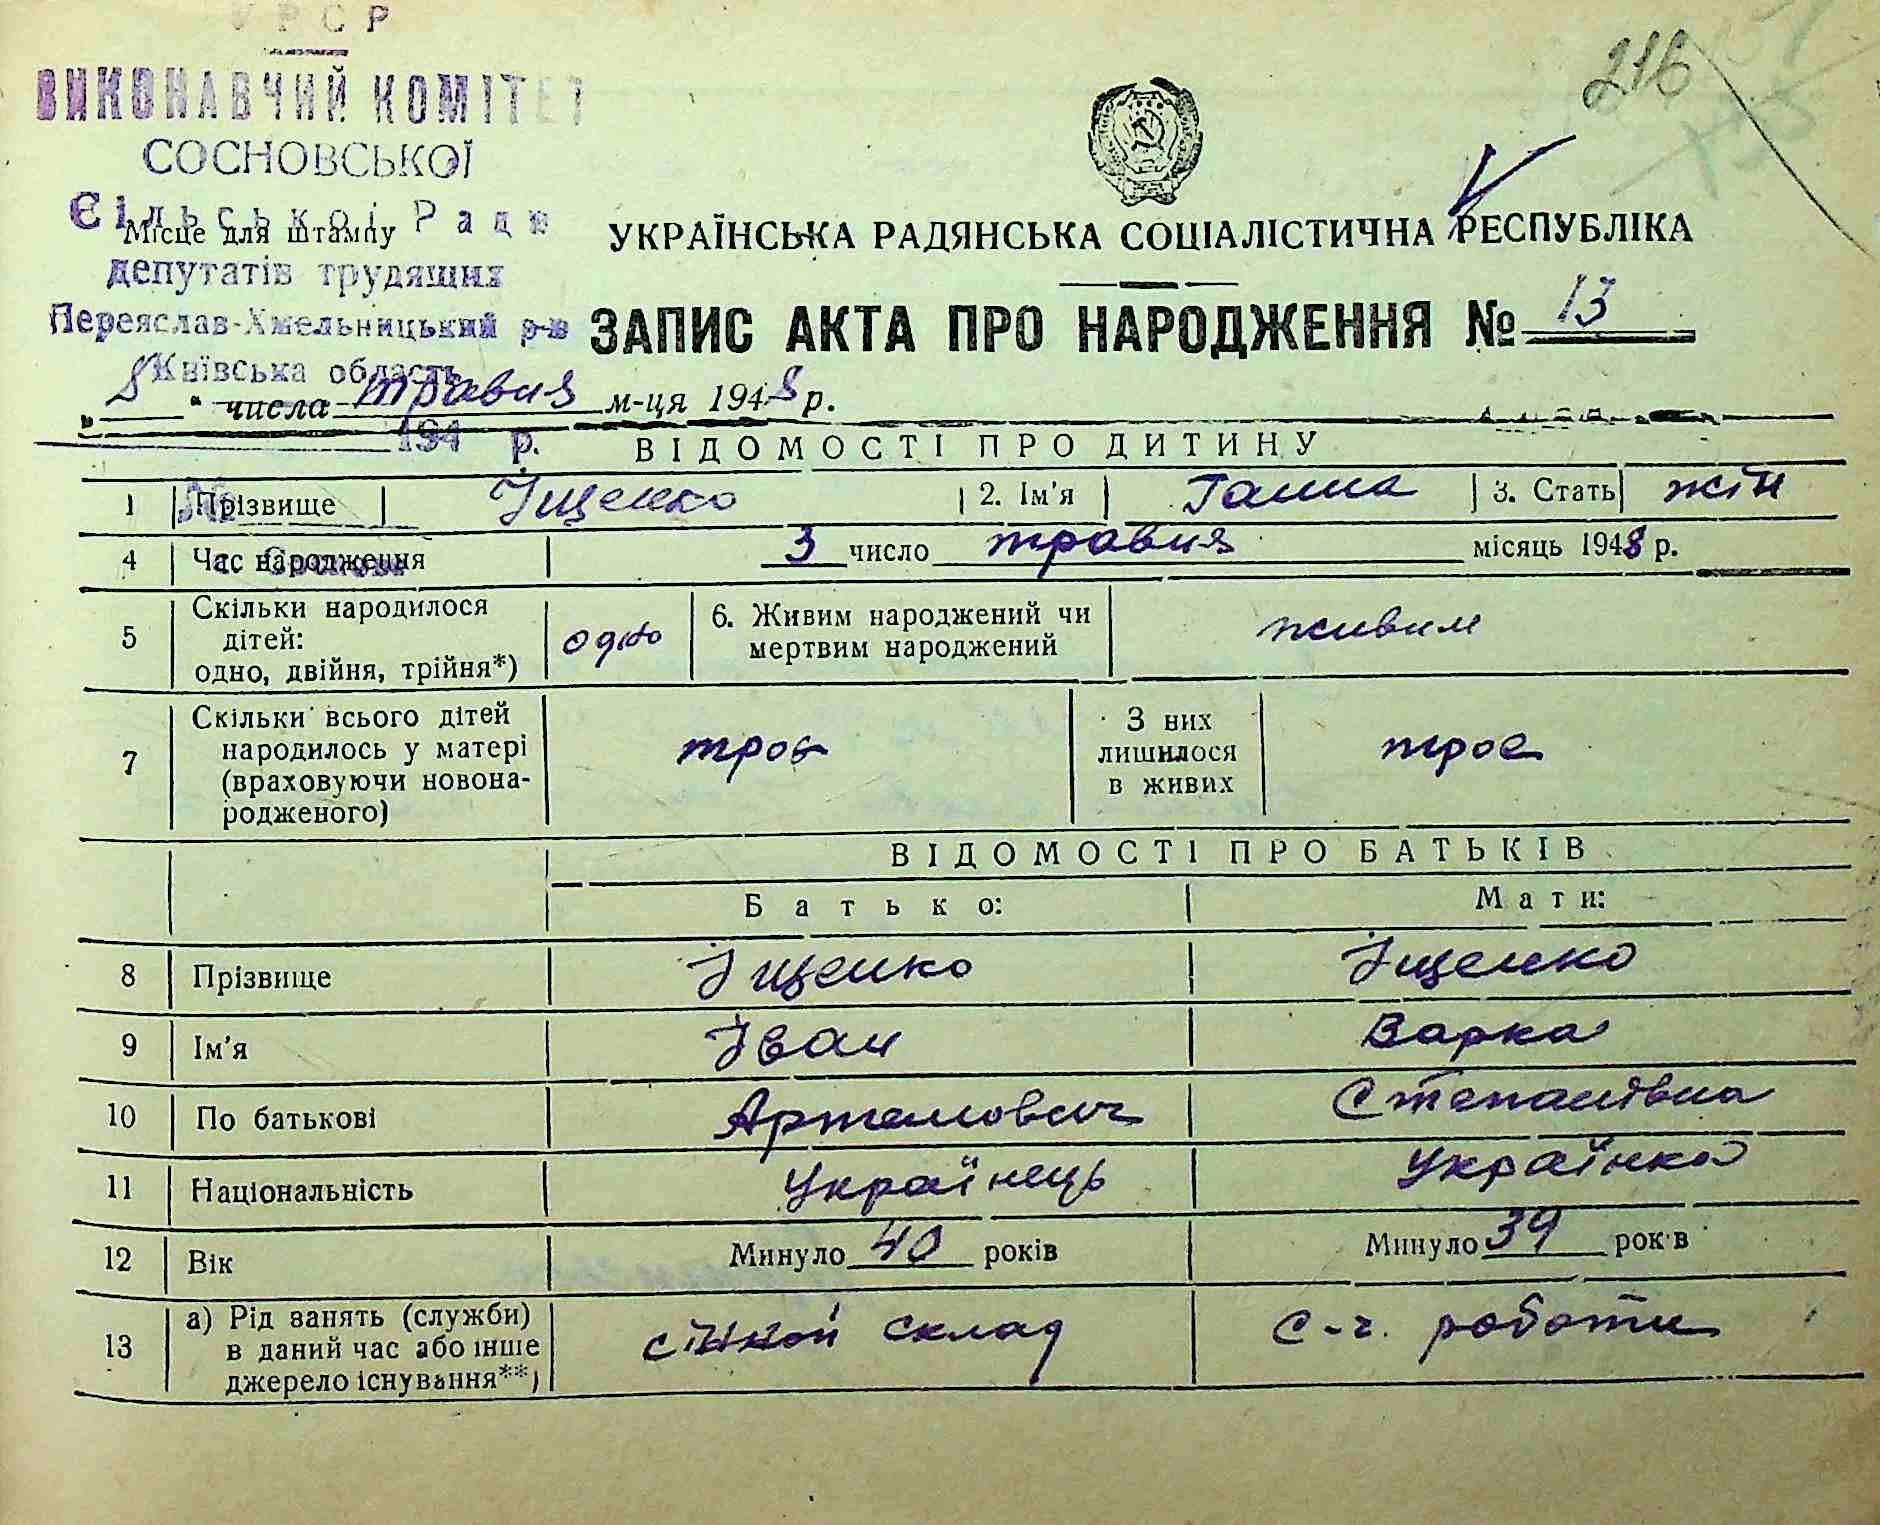 УРСР
ВИКОНАВЧИЙ КОМІТЕТ
СОСНОВСЬКОЇ
Сільської Ради
Місце для штампу
депутатів трудящих
Переяслав-Хмельницький р-н
Київська область
194 р.
№
216
УКРАЇНСЬКА РАДЯНСЬКА СОЦІАЛІСТИЧНА РЕСПУБЛІКА
ЗАПИС АКТА ПРО НАРОДЖЕННЯ № 13
„8“ числа травня м-ця 1948 р.
ВІДОМОСТІ ПРО ДИТИНУ
1 Прізвище Іщенко 2. Ім'я Ганна 3. Стать жін
4 Час народження 3 число травня місяць 1948 р.
5 Скільки народилося дітей: одно, двійня, трійня*) одно 6. Живим народжений чи мертвим народжений живим
7 Скільки всього дітей народилось у матері (враховуючи новонародженого) троє З них лишилося в живих троє
ВІДОМОСТІ ПРО БАТЬКІВ
Батько: Мати:
8 Прізвище Іщенко Іщенко
9 Ім'я Іван Варка
10 По батькові Артемович Степанівна
11 Національність Українець Українка
12 Вік Минуло 40 років Минуло 39 років
13 а) Рід занять (служби) в даний час або інше джерело існування**) склад с-г. роботи